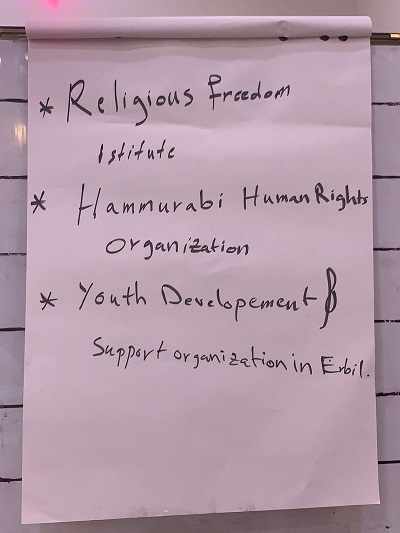 * Religious freedom
Istitute
* Hammurabi Human Rights
Organization
* Youth Developement &
Support organization in Erbil.